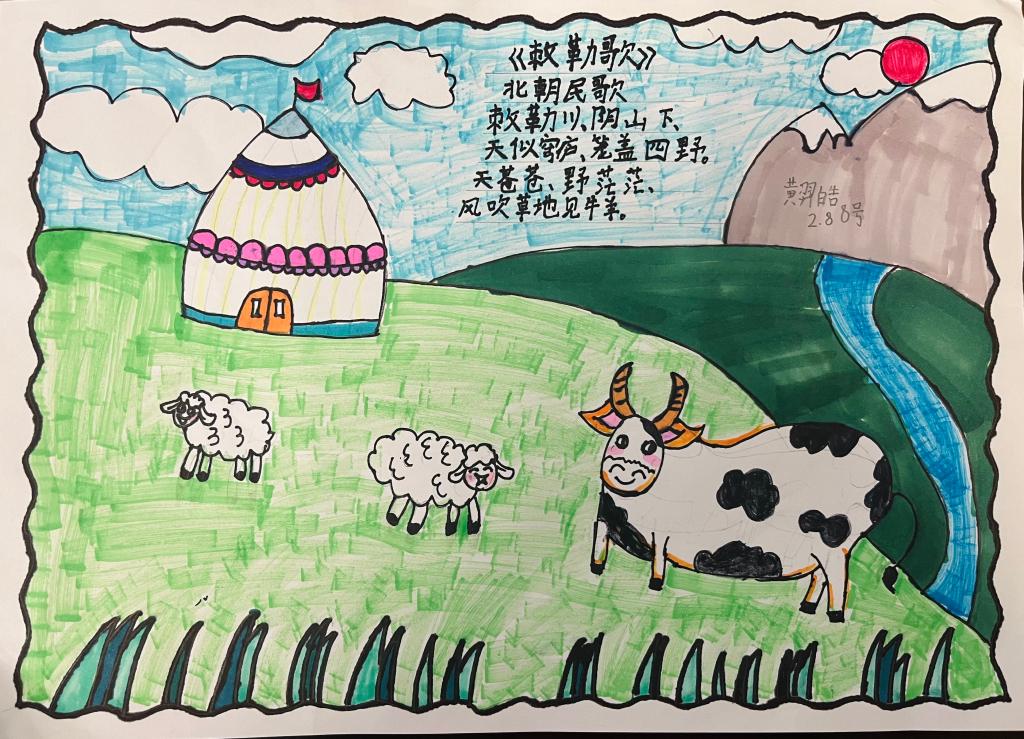 《敕勒歌》
北朝民歌
敕勒川、阴山下、
天似穹庐、笼盖四野。
天苍苍、野茫茫、
风吹草地见牛羊。
黄羿皓
2.8 8号